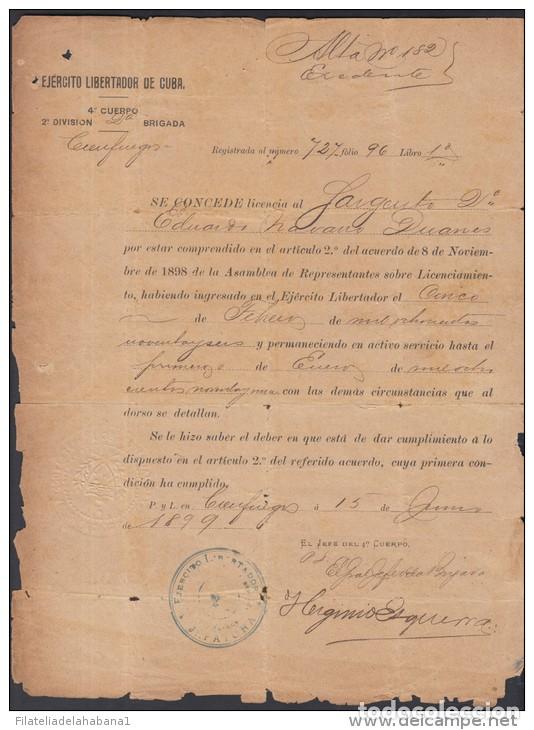 Alta nº 182
Excedente
EJERCITO LIBERTADOR DE CUBA.
4º CUERPO
2ª DIVISION 2ª BRIGADA
Cienfuegos
Registrada al número 727 fólio 96 Libro 1º
SE CONCEDE licencia al Sargento Dn
Eduardo Navarro Duanes
por estar comprendido en el artículo 2.º del acuerdo de 8 de Noviem-
bre de 1898 de la Asamblea de Representantes sobre Licenciamien-
to, habiendo ingresado en el Ejército Libertador el cinco
de Febrero de mil ochocientos
noventa y seis y permaneciendo en activo servicio hasta el
primero de Enero de mil ocho
cientos noventa y nueve con las demás circunstancias que al
dorso se detallan.
Se le hizo saber el deber en que está de dar cumplimiento á lo
dispuesto en el artículo 2.º del referido acuerdo, cuya primera con-
dición ha cumplido.
P. y L. en Cienfuegos á 15 de Junio
de 1899
EL JEFE DEL 4º CUERPO,
El Gral Jefe de la Brigada
Higinio Esquerra
EJERCITO LIBERTADOR
2
JEFATURA
Filateliadelahabana1
todocoleccion
PICTURE.NET